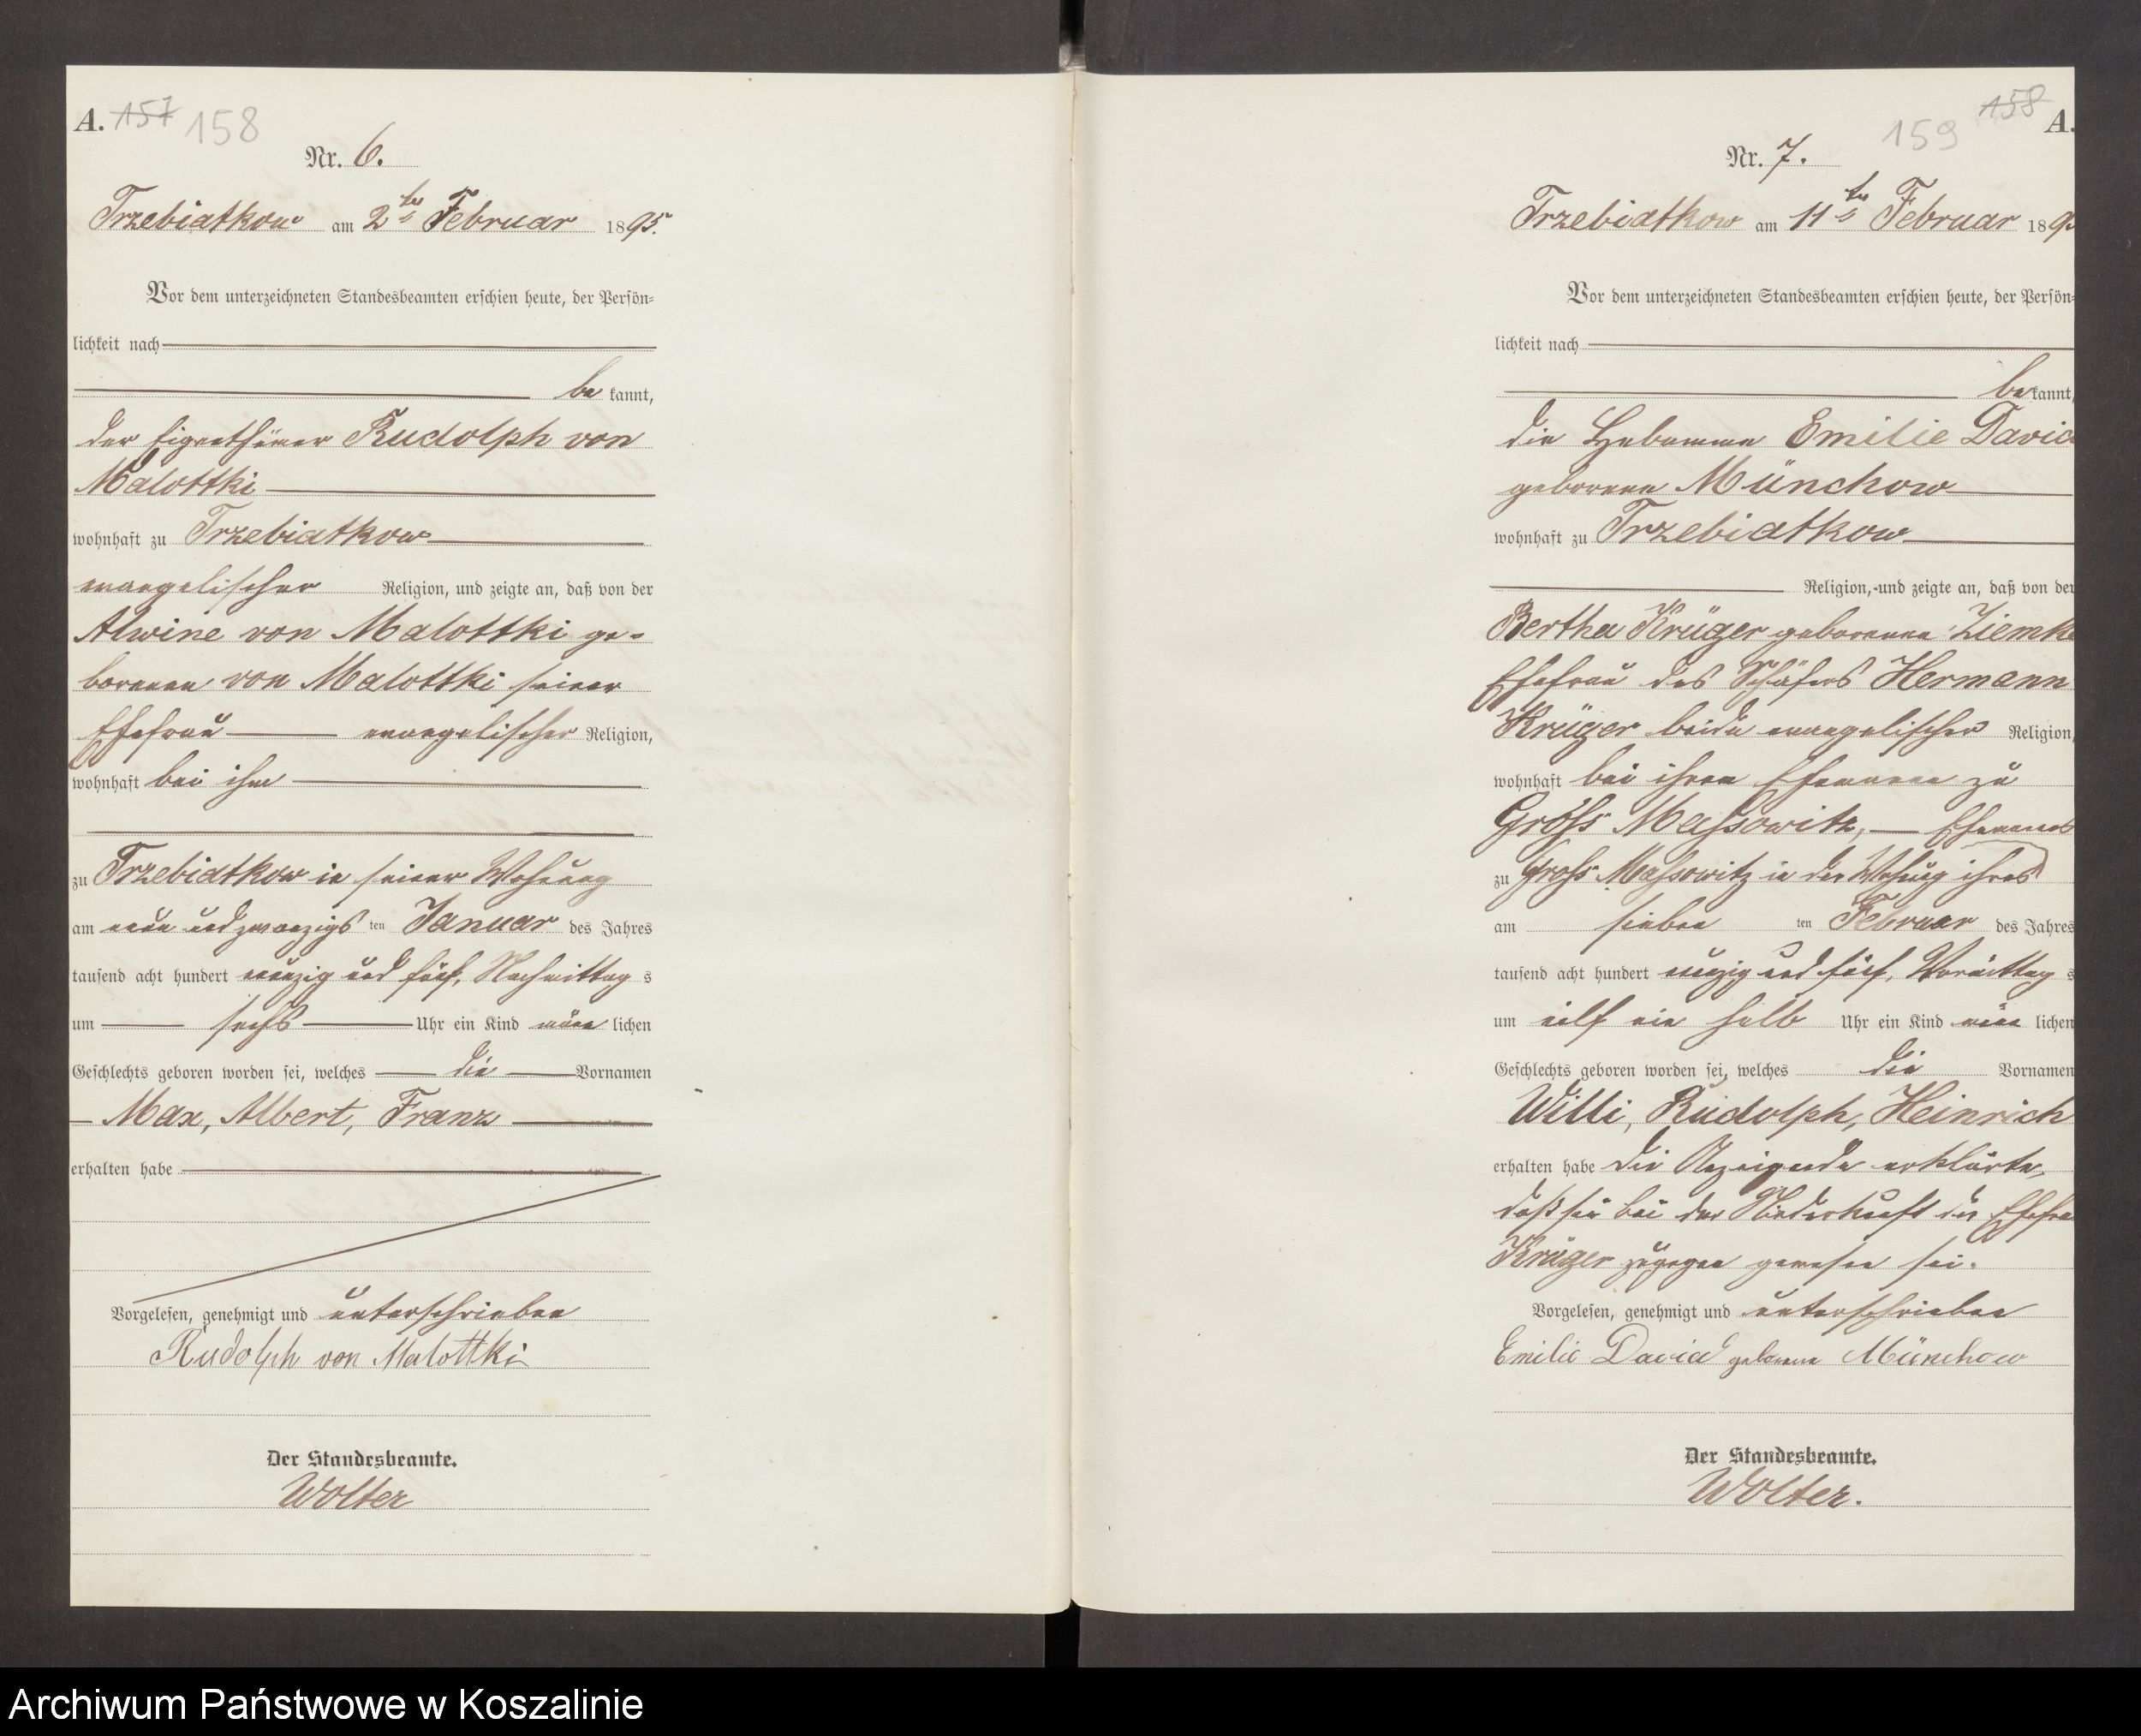 A. 157 158
Nr. 6.
Trzebiatkow am 2ten Februar 1895.
Vor dem unterzeichneten Standesbeamten erschien heute, der Persön-
lichkeit nach
be kannt,
der Eigenthümer Rudolph von
Malottki
wohnhaft zu Trzebiatkow
evangelischer Religion, und zeigte an, daß von der
Alwine von Malottki ge-
borenen von Malottki seiner
Ehefrau evangelischer Religion,
wohnhaft bei ihm
zu Trzebiatkow in seiner Wohnung
am neun und zwanzigs ten Januar des Jahres
tausend acht hundert neunzig und fünf, Nachmittag s
um sechs Uhr ein Kind männ lichen
Geschlechts geboren worden sei, welches die Vornamen
Max, Albert, Franz
erhalten habe
Vorgelesen, genehmigt und unterschrieben
Rudolph von Malottki
Der Standesbeamte.
Wolter
158 A.
159
Nr. 7.
Trzebiatkow am 11ten Februar 189
Vor dem unterzeichneten Standesbeamten erschien heute, der Persön-
lichkeit nach
be kannt,
die Hebamme Emilie David
geborene Münchow
wohnhaft zu Trzebiatkow
Religion, und zeigte an, daß von der
Bertha Krüger geborenen Ziemke
Ehefrau des Schäfers Hermann
Krüger beide evangelischer Religion,
wohnhaft bei ihren Ehemann zu
Gross Massowitz, Ehemannes
zu Gross Massowitz in der Wohnung ihres
am sieben ten Februar des Jahres
tausend acht hundert neunzig und fünf, Vormittag s
um eilf ein halb Uhr ein Kind männ lichen
Geschlechts geboren worden sei, welches die Vornamen
Willi, Rudolph, Heinrich
erhalten habe die Anzeigende erklärte,
daß sie bei der Niederkunft der Ehefrau
Krüger zugegen gewesen sei.
Vorgelesen, genehmigt und unterschrieben
Emilie David geborene Münchow
Der Standesbeamte.
Wolter.
Archiwum Państwowe w Koszalinie